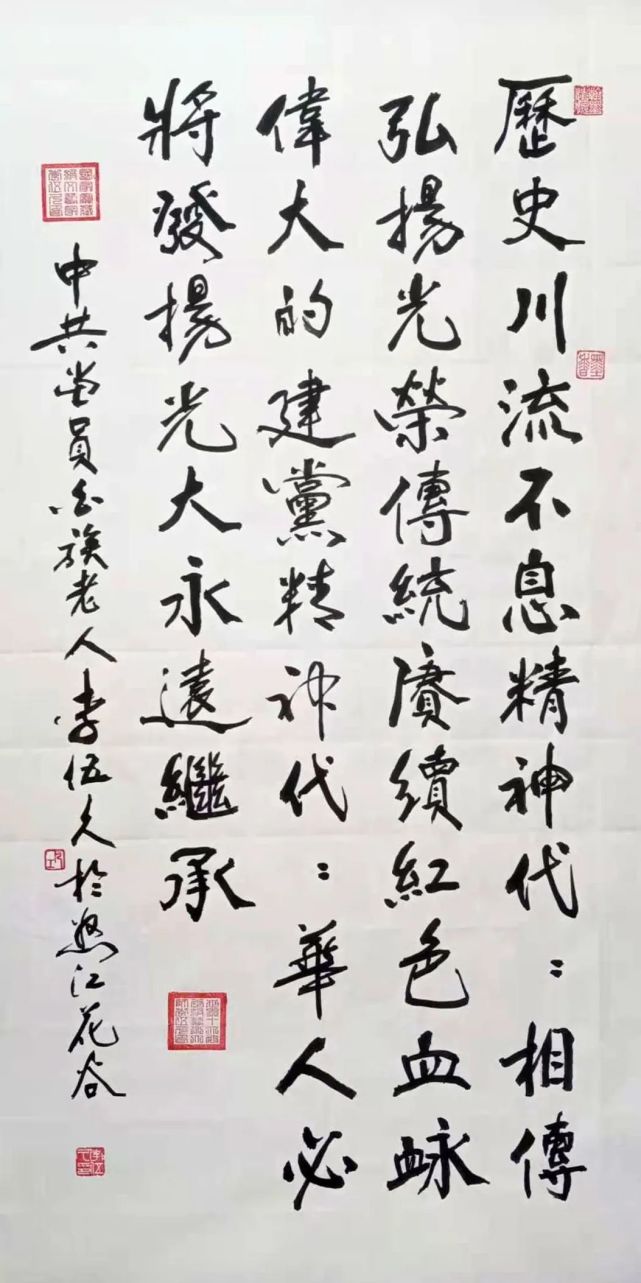 歷史川流不息精神代：相傳
弘揚光榮傳統賡續紅色血䘑
偉大的建黨精神代：華人必
將發揚光大永遠繼承
中共党員白族老人李伍久於怒江花谷